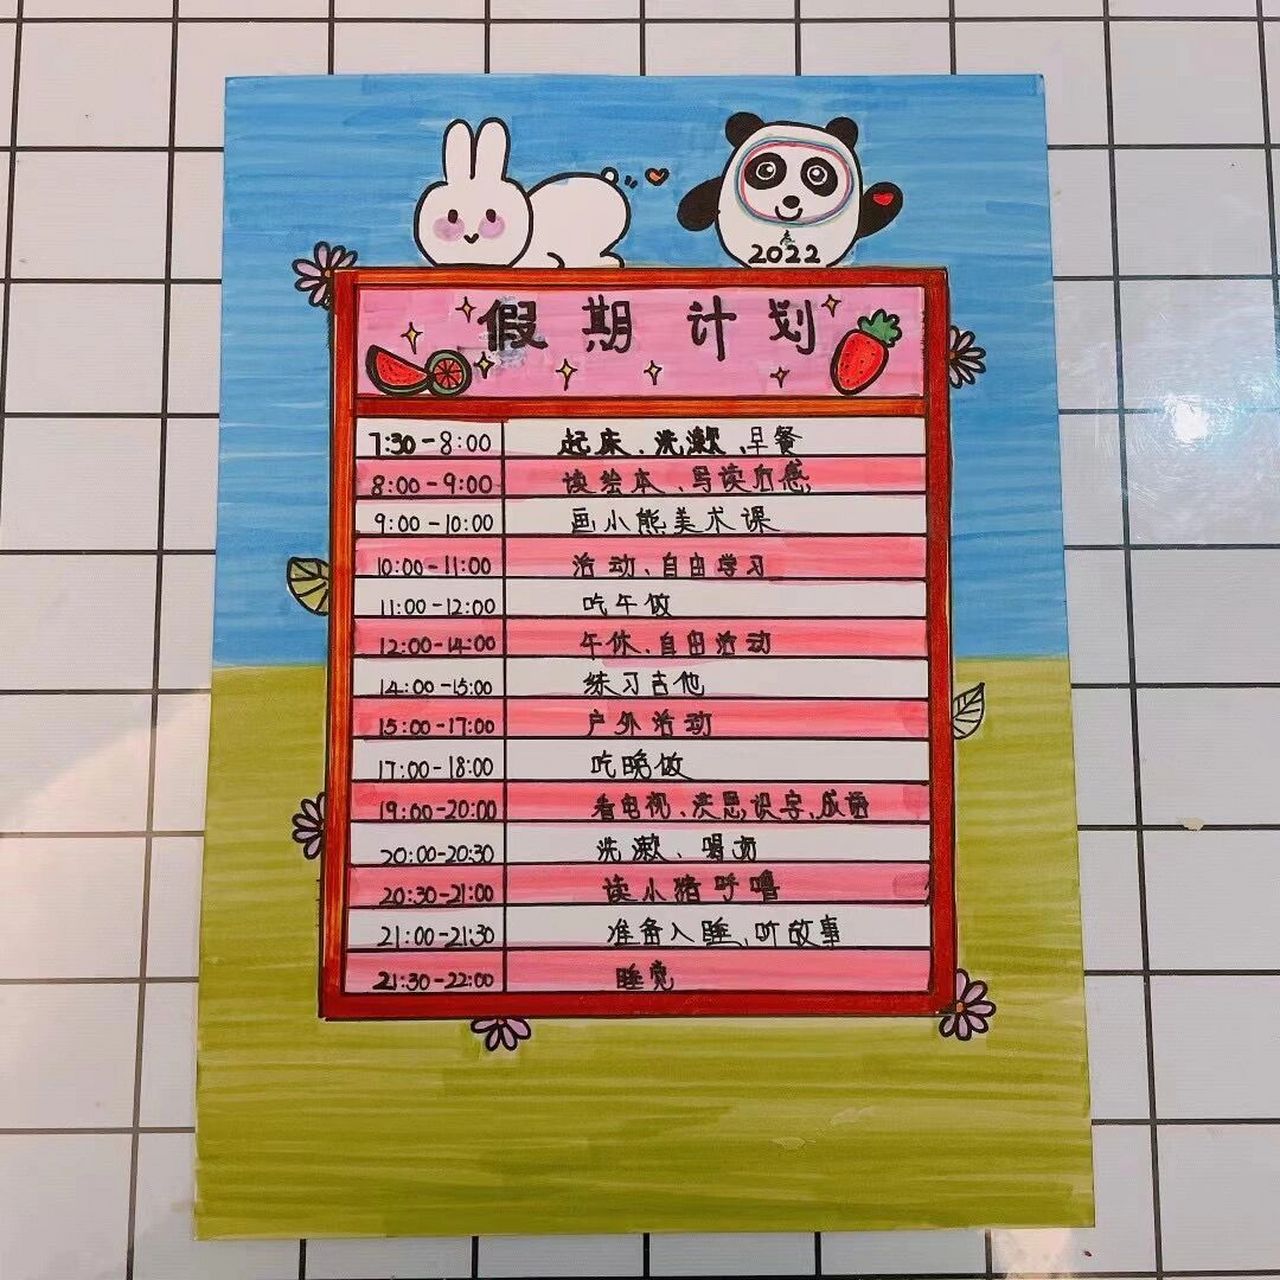 2022
假期计划
7:30-8:00 起床、洗漱、早餐
8:00-9:00 读绘本、写读后感
9:00-10:00 画小熊美术课
10:00-11:00 活动、自由学习
11:00-12:00 吃午饭
12:00-14:00 午休、自由活动
14:00-15:00 练习吉他
15:00-17:00 户外活动
17:00-18:00 吃晚饭
19:00-20:00 看电视、洪恩识字、成语
20:00-20:30 洗漱、喝奶
20:30-21:00 读小猪呼噜
21:00-21:30 准备入睡、听故事
21:30-22:00 睡觉